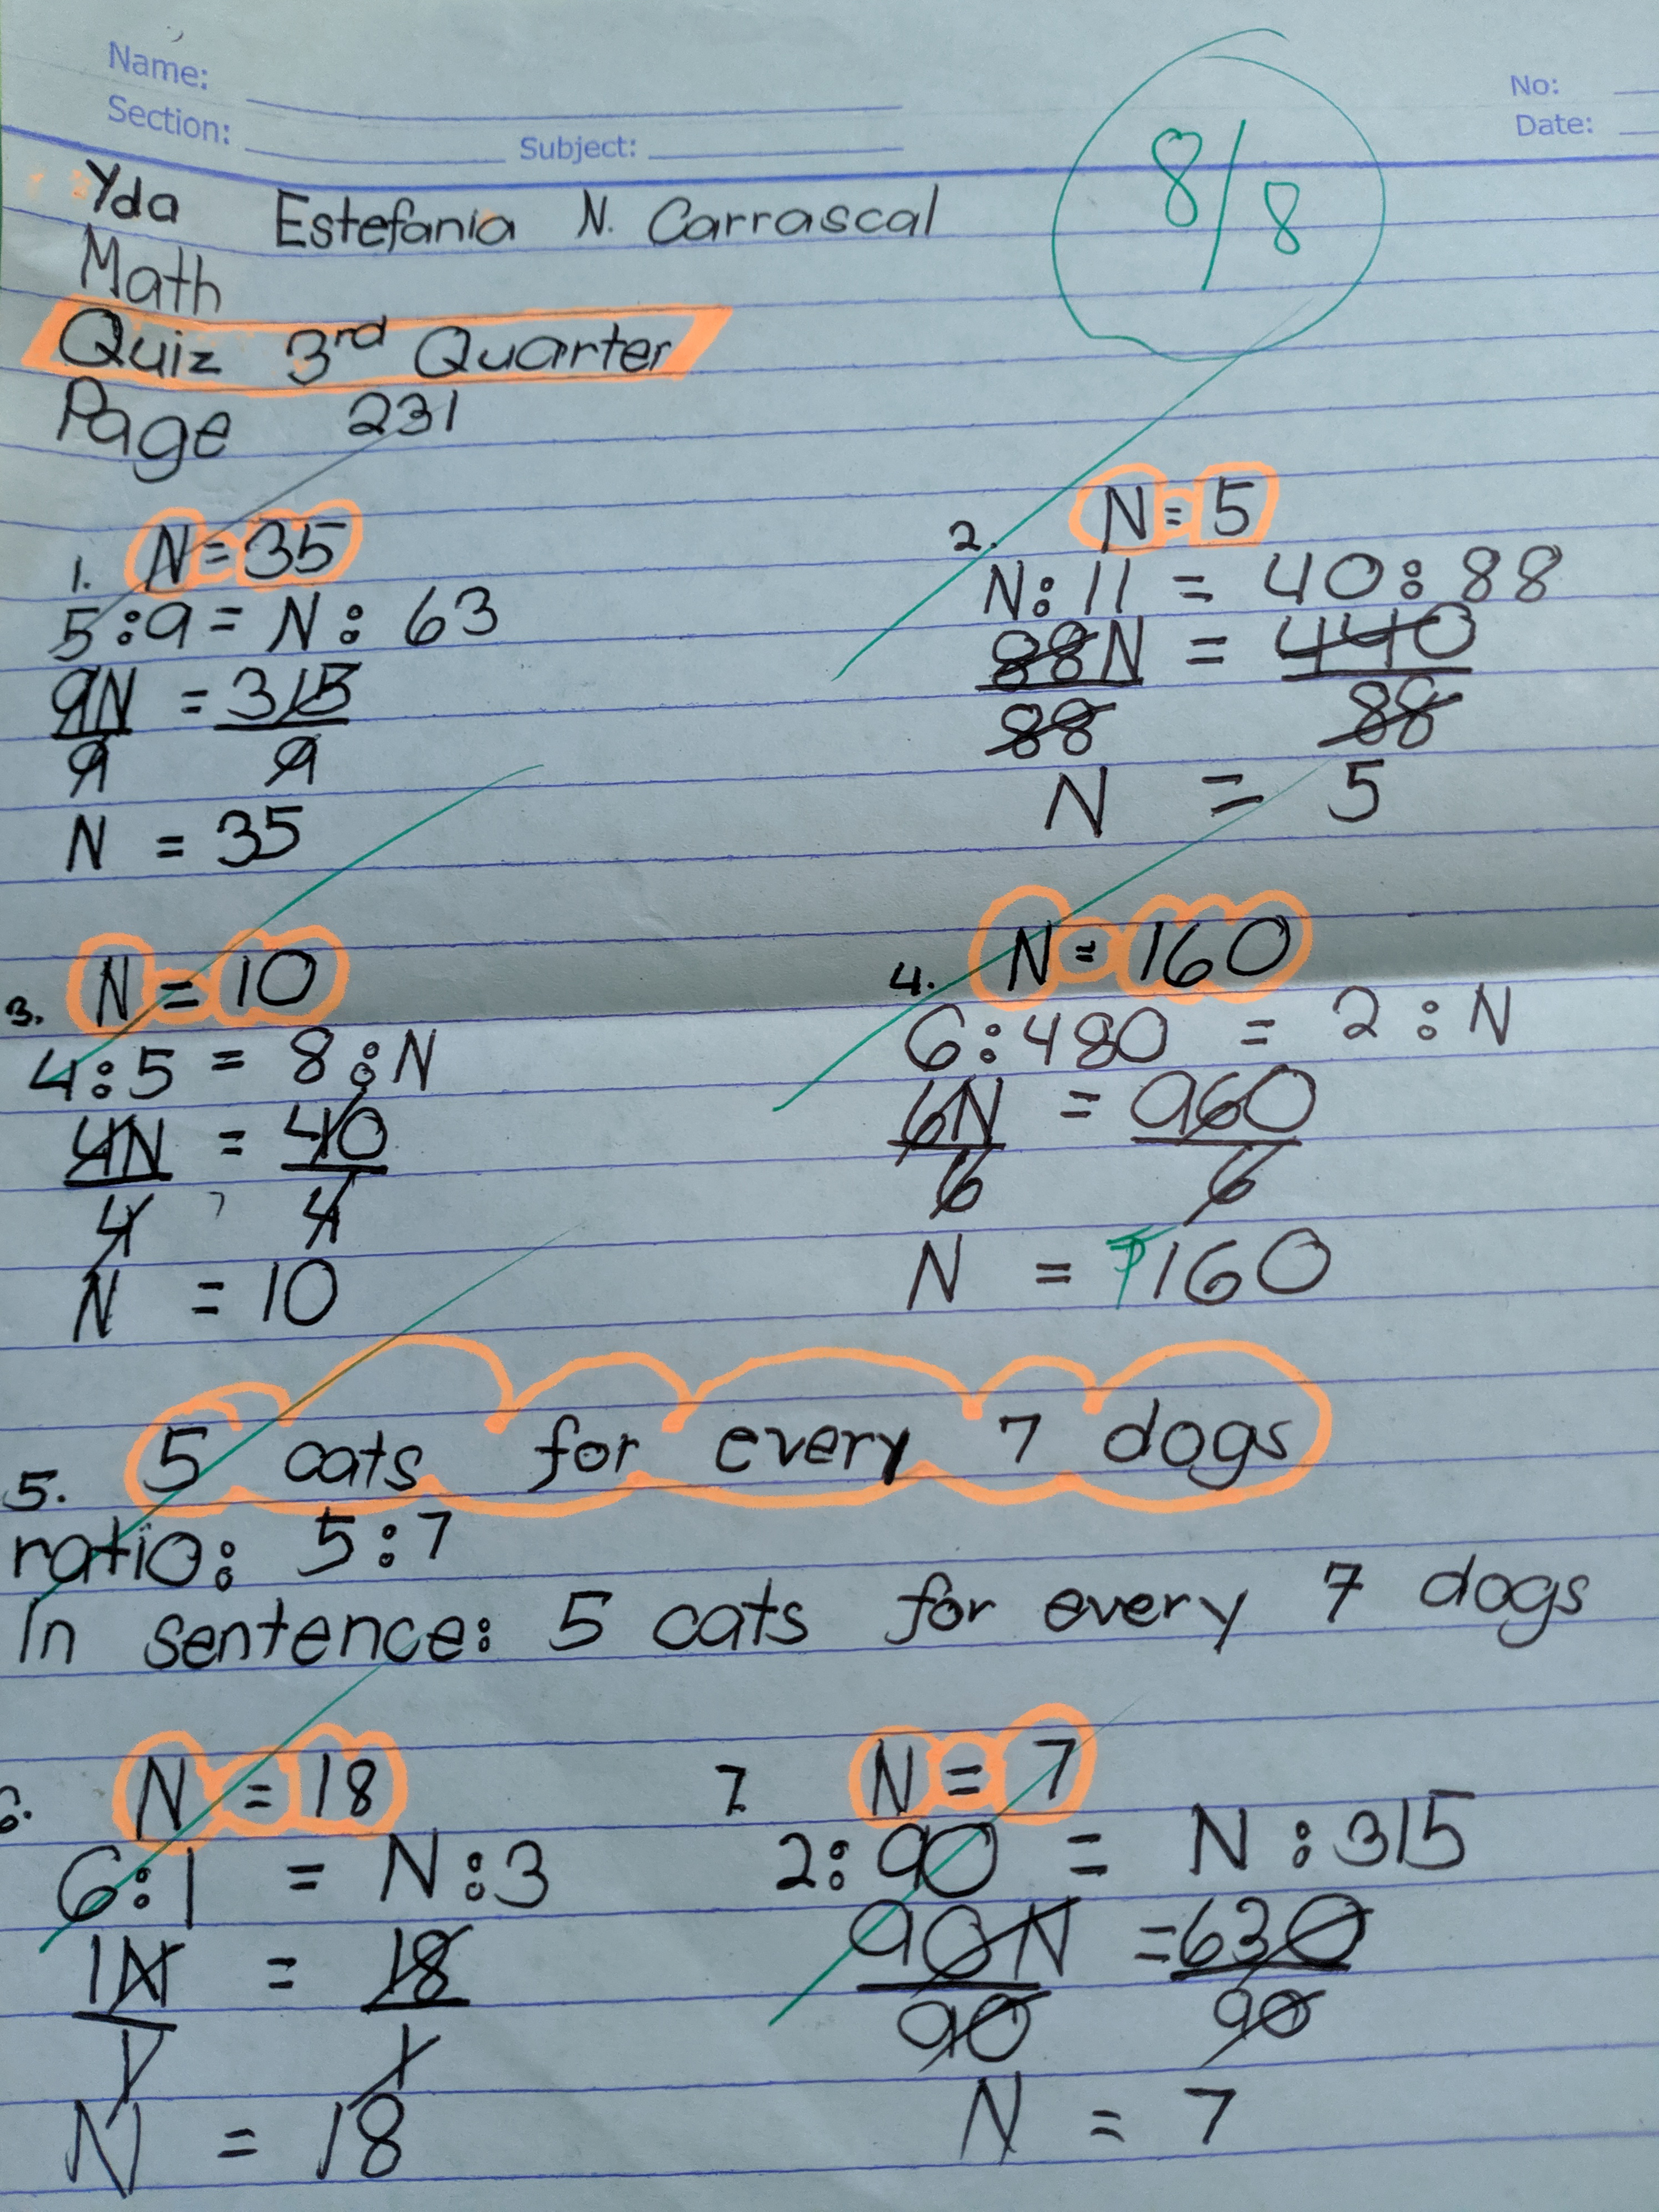 Name:
No:
Section:
Subject:
Date:
8/8
Yda Estefania N. Carrascal
Math
Quiz 3rd Quarter
Page 231
1. N = 35
5:9 = N: 63
9N = 315
9 9
N = 35
2. N = 5
N: 11 = 40:88
88N = 440
88 88
N = 5
3. N = 10
4:5 = 8:N
4N = 40
4 4
N = 10
4. N = 160
6:480 = 2:N
6N = 960
6 6
N = ₱160
5. 5 cats for every 7 dogs
ratio: 5:7
In sentence: 5 cats for every 7 dogs
6. N = 18
6:1 = N:3
1N = 18
1 1
N = 18
7. N = 7
2:90 = N:315
90N = 630
90 90
N = 7